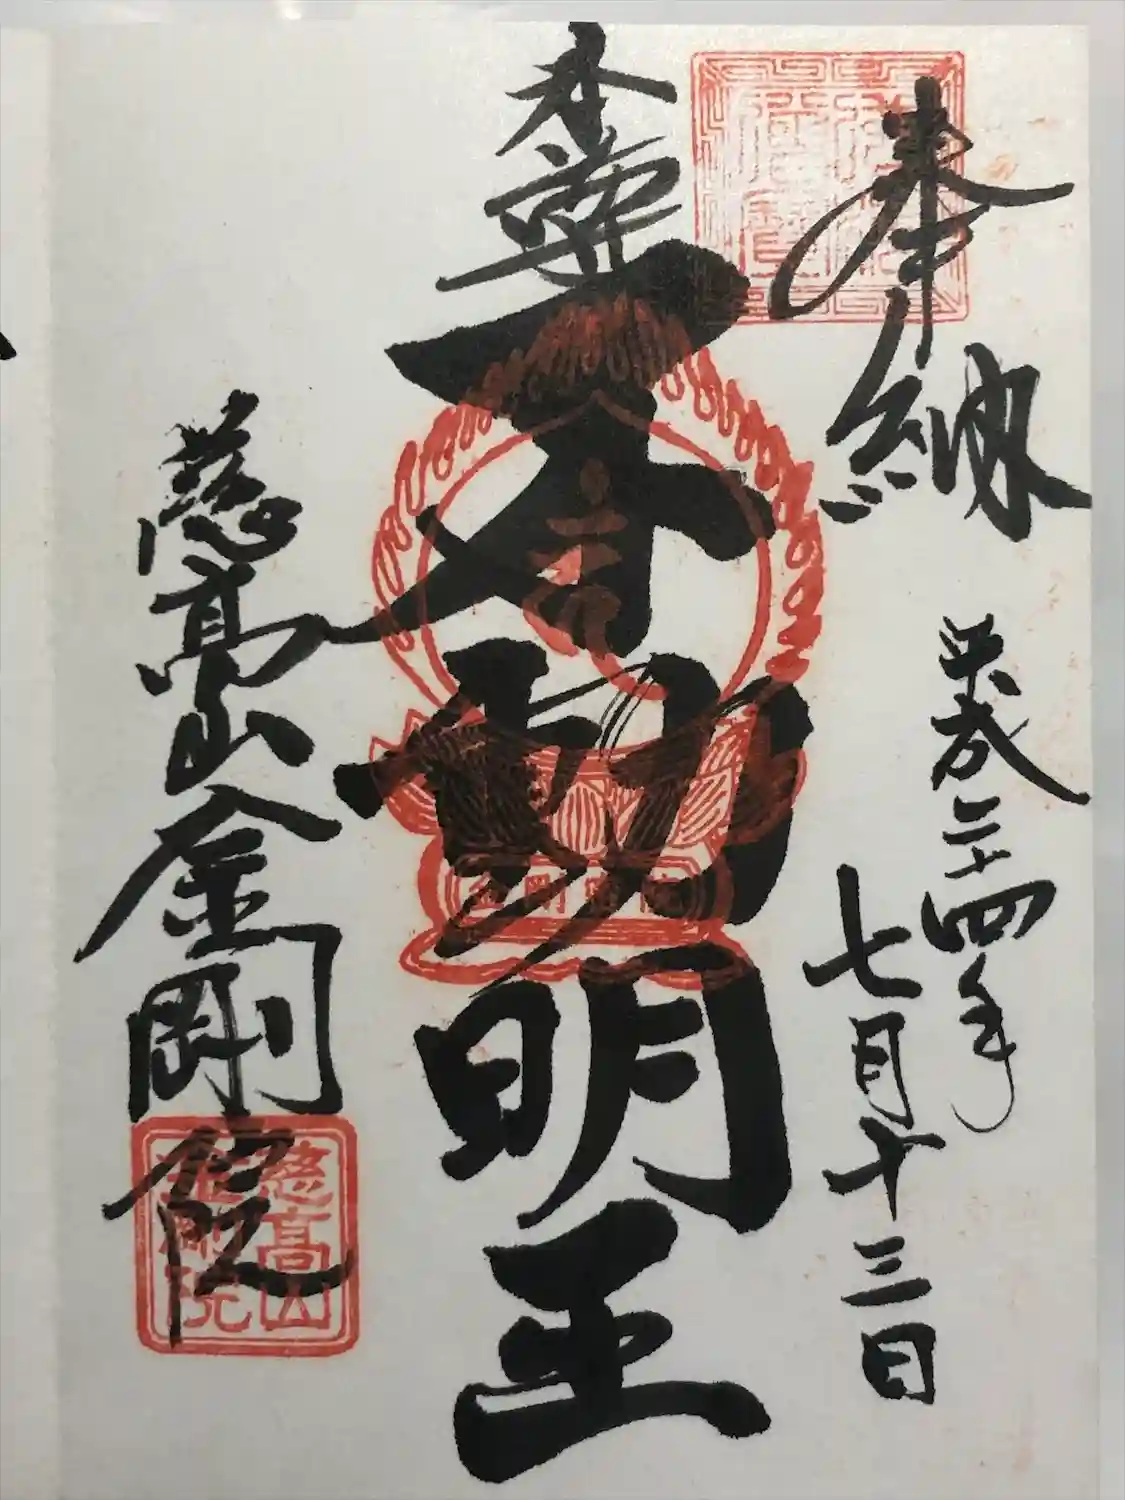 奉納
平成二十四年
七月十三日
本尊
不動明王
慈高山金剛院
金剛寳院
慈高山
金剛院